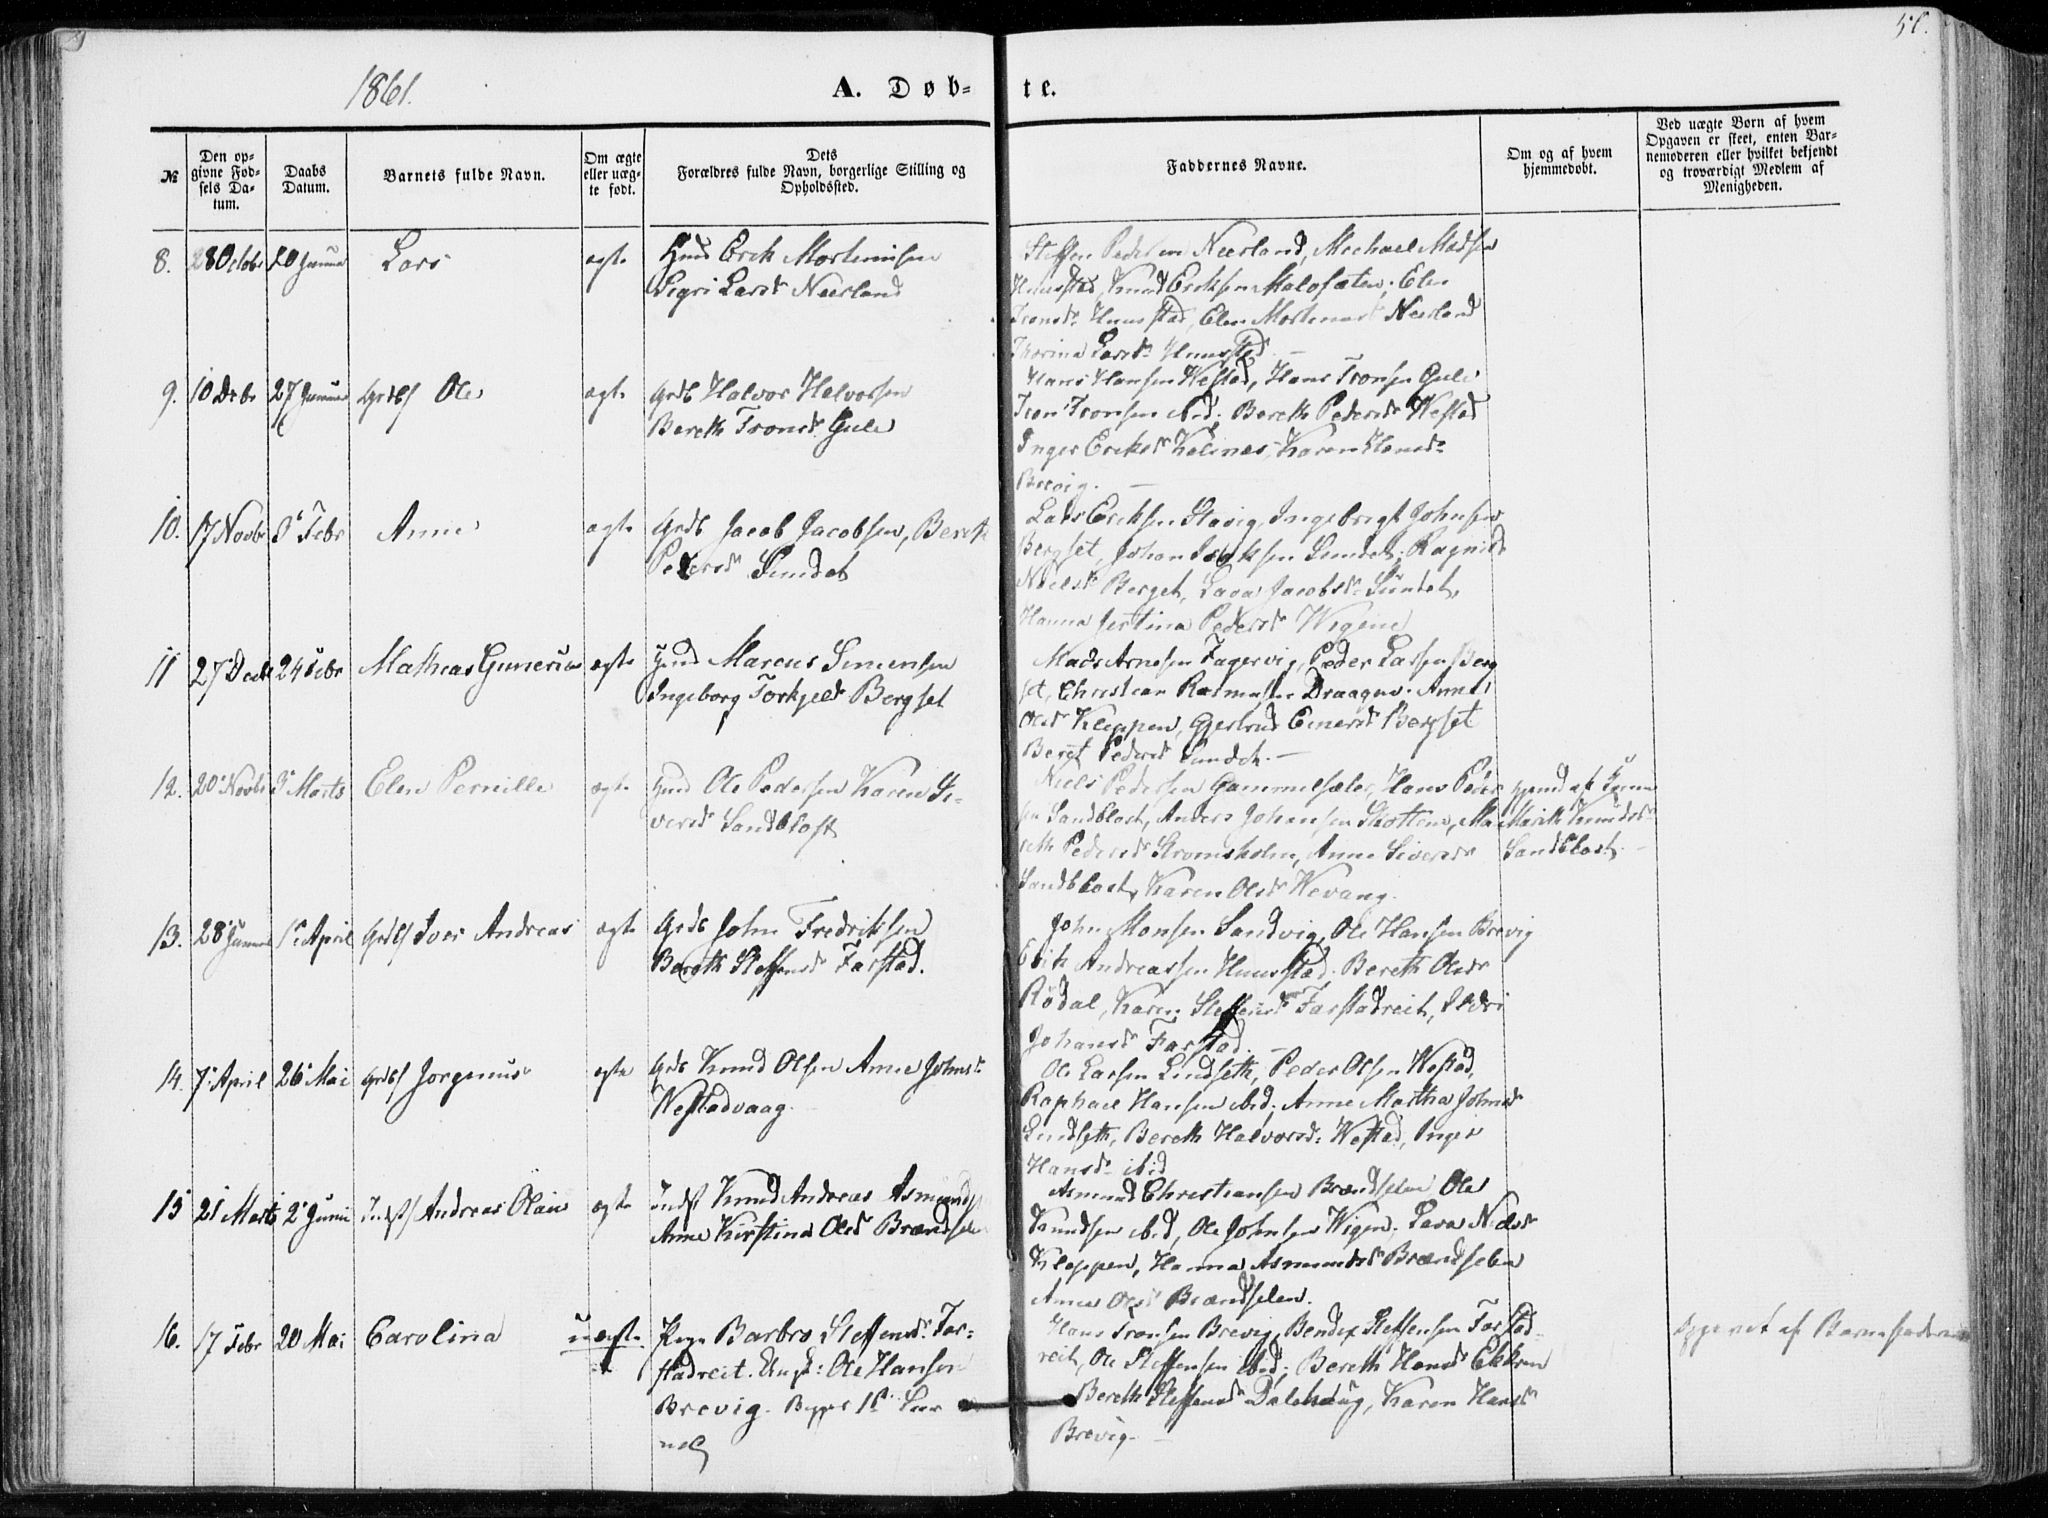 50.
1861.
A. Døb- te.
№
Den opgivne Fødsels Datum.
Daabs Datum.
Barnets fulde Navn.
Om ægte eller uægte født.
Dets Forældres fulde Navn, borgerlige Stilling og Opholdssted.
Faddernes Navne.
Om og af hvem hjemmedøbt.
Ved uægte Børn af hvem Opgaven er skeet, enten Barnemoderen eller hvilket bekjendt og troværdigt Medlem af Menigheden.
8. 28 Octobr 20 Januar Lars ægte Hmd Erik Mortensen
Sigri Larsdr Neerland
Steffen Pedersen Neerland, Michael Madsen
Huustad, Knud Eriksen Malosæter, Elen
Tronsdr Huustad, Elen Mortensdr Neerland
Thorina Larsdr Huustad.
9. 10 Decbr 27 Januar Grdbs Ole ægte Grdb Halvor Halvorsen
Bereth Tronsdr Gule
Hans Hansen Westad, Hans Tronsen Gule
Tron Tronsen ibid; Bereth Pedersdr Westad
Inger Eriksdr Kalsnes, Karen Hansdr
Brevig.
10. 17 Novbr 3 Febr Anne ægte Grdb Jacob Jacobsen, Bereth
Pedersdr Sundet
Lars Eriksen Stavig, Ingebrigt Johnsen
Bergset, Johan Jacobsen Sundet; Ragnild
Nielsdr Berget, Lava Jacobsdr Sundet,
Hanna Jertina Pedersdr Wigene
11 27 Decbr 24 Febr Mathias Gunerius ægte Hmd Marcus Simensen
Ingeborg Torkjelsdr Bergset
Mads Arnesen Fagervig, Peder Larsen Berg
set, Christian Rasmussen Draagnes. Anne
Olsdr Kleppen, Gjertrud Einersdr Bergset
Beret Pedersdr Sundet.
12. 20 Novbr 3 Marts Elen Pernille ægte Hmd Ole Pedersen Karen Si-
versdr Sandblost
Niels Pedersen Gammelsæter, Hans Peder
sen Sandblost, Anders Johansen Skotten, Ma
reth Pedersdr Stromsholm, Anne Siversdr
Sandblost, Karen Olsdr Wevang.
hjemd af
Marith Knudsdr
Sandblost
13. 28 Januar 1 April Grdbs Iver Andreas ægte Grdb John Fredriksen
Bereth Steffensdr Farstad.
John Monsen Sandvig, Ole Hansen Brevig
Erik Andreassen Huustad. Bereth Olsdr
Rødal, Karen Steffensdr Farstadreit, Ildri
Johansdr Farstad.
14. 7 April 26 Mai Grdbs Jørgenus ægte Grdb Knud Olsen Anne Johnsdr
Westadvaag.
Ole Larsen Lindseth, Peder Olsen Westad,
Raphael Hansen ibid; Anne Martha Johnsdr
Lindseth, Bereth Halvorsdr Westad, Inger
Hansdr ibid
15 21 Marts 2 Juni Indst Andreas Olai ægte Indst Knud Andreas Asmundsen
Anne Kirstina Olsdr Brændselen
Asmund Christiansen Brændselen Ole
Knudsen ibid, Ole Johnsen Wigen, Lava Nielsdr
Kleppen, Hanna Asmundsdr Brændselen
Anne Olsdr Brændselen.
16. 17 Febr 20 Mai Carolina uægte Pige Barbro Steffensdr Far-
stadreit. Ungk: Ole Hansen
Brevig. Begges 1ste
Hans Tronsen Brevig, Bendix Steffensen Farstad-
reit, Ole Steffensen ibid; Bereth Hansdr Ekkren
Bereth Steffensdr Dalehaug, Karen Hansdr
Brevig.
Opgivet af Barnefaderen